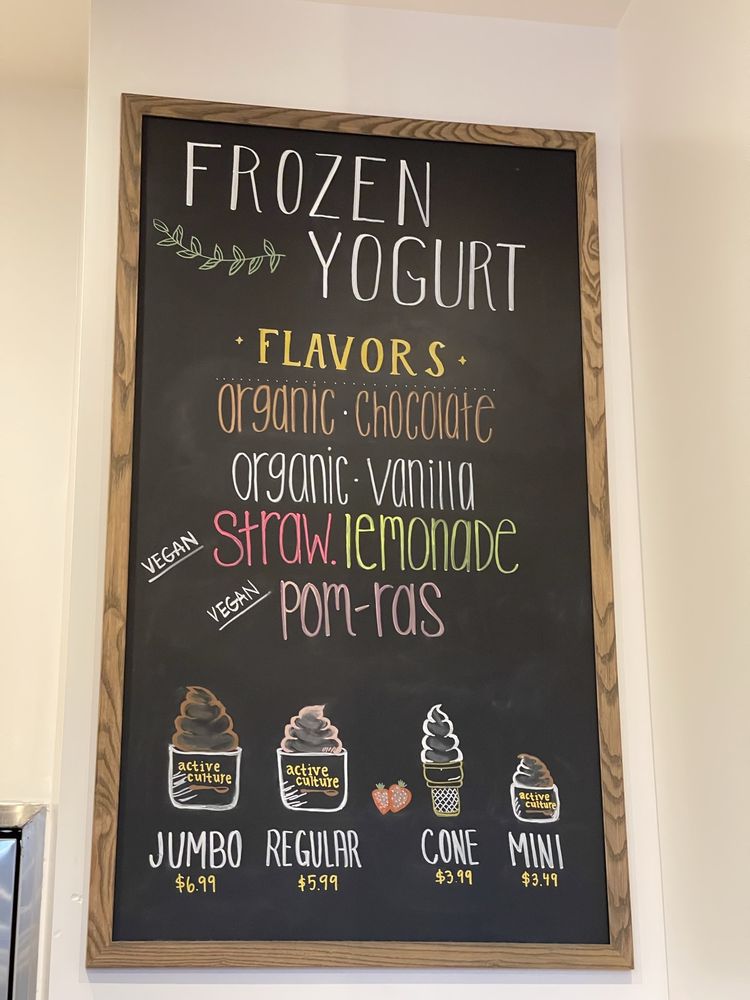 FROZEN
YOGURT
FLAVORS
organic · chocolate
organic · vanilla
VEGAN straw. lemonade
VEGAN pom-ras
active culture
active culture
active culture
JUMBO REGULAR CONE MINI
$6.99 $5.99 $3.99 $3.49